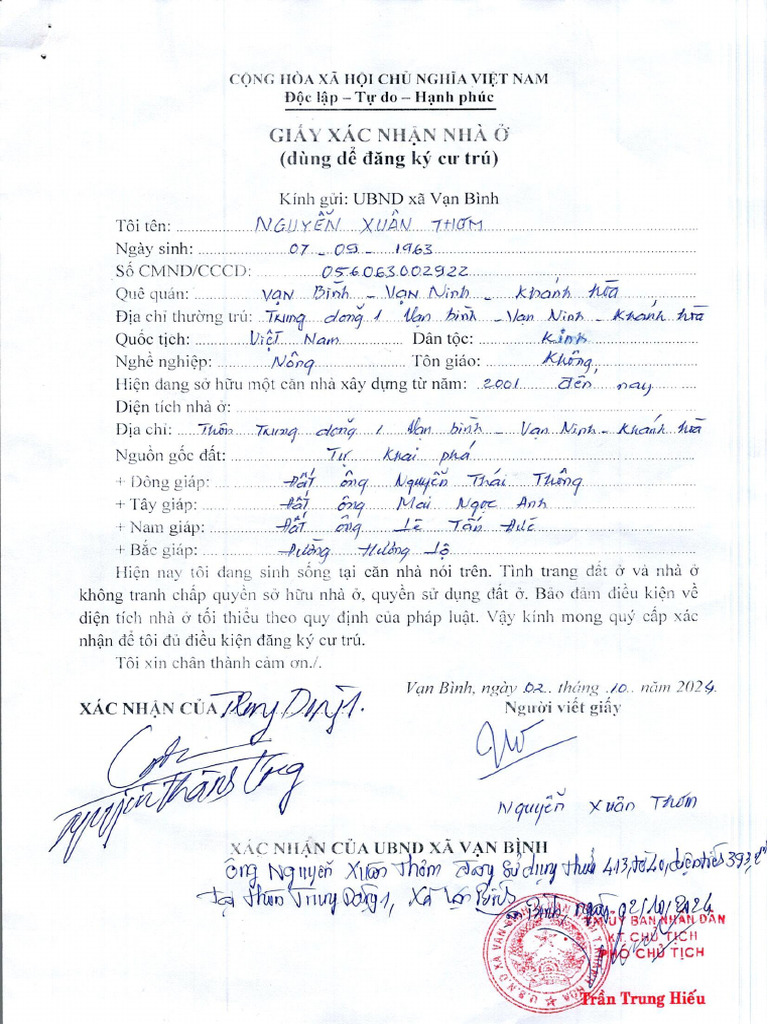 CỘNG HÒA XÃ HỘI CHỦ NGHĨA VIỆT NAM
Độc lập – Tự do – Hạnh phúc
GIẤY XÁC NHẬN NHÀ Ở
(dùng để đăng ký cư trú)
Kính gửi: UBND xã Vạn Bình
Tôi tên: NGUYỄN XUÂN THƠM
Ngày sinh: 07 - 09 - 1963
Số CMND/CCCD: 056063002922
Quê quán: Vạn Bình - Vạn Ninh - Khánh Hòa
Địa chỉ thường trú: Trung dong 1 Vạn bình - Vạn Ninh - Khánh Hòa
Quốc tịch: Việt Nam Dân tộc: Kinh
Nghề nghiệp: Nông Tôn giáo: Không
Hiện đang sở hữu một căn nhà xây dựng từ năm: 2001 đến nay
Diện tích nhà ở:
Địa chỉ: Thôn Trung dong 1 Vạn bình - Vạn Ninh - Khánh Hòa
Nguồn gốc đất: Tự Khai phá
+ Đông giáp: Đất ông Nguyễn Thái Thông
+ Tây giáp: Đất ông Mai Ngọc Anh
+ Nam giáp: Đất ông Lê Tấn Đức
+ Bắc giáp: Đường Hương Lộ
Hiện nay tôi đang sinh sống tại căn nhà nói trên. Tình trạng đất ở và nhà ở
không tranh chấp quyền sở hữu nhà ở, quyền sử dụng đất ở. Bảo đảm điều kiện về
diện tích nhà ở tối thiểu theo quy định của pháp luật. Vậy kính mong quý cấp xác
nhận để tôi đủ điều kiện đăng ký cư trú.
Tôi xin chân thành cảm ơn./.
Vạn Bình, ngày 02 tháng 10 năm 2024
XÁC NHẬN CỦA Trung Dong 1. Người viết giấy
Nguyễn Xuân Thơm
XÁC NHẬN CỦA UBND XÃ VẠN BÌNH
Ông Nguyễn Xuân Thơm đang sử dụng thửa 413, tờ 20, diện tích 393,2
Tại thôn Trung Dong 1, Xã Vạn Bình
Bình, ngày 02/10/2024
TM. ỦY BAN NHÂN DÂN
KT. CHỦ TỊCH
PHÓ CHỦ TỊCH
Trần Trung Hiếu